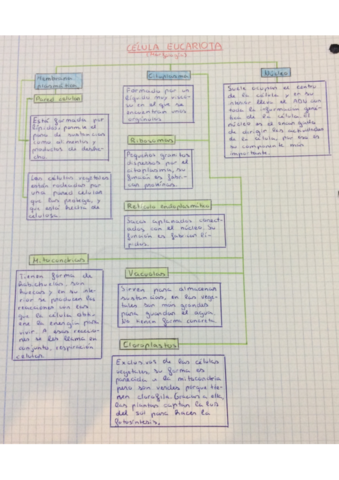 CÉLULA EUCARIOTA
Membrana
plasmática
Citoplasma
Núcleo
Pared celular
Está formada por
lípidos, permite el
paso de sustancias
como alimentos y
productos de
Las células vegetales
están rodeadas por
una pared celular
que las protege, y
que está hecha de
celulosa.
Formada por un
líquido muy
en el que se
encuentran unos
orgánulos.
Suele ocupar el centro
de la célula y en su
interior lleva el ADN con
toda la información
de la célula. El
núcleo es el encargado
de dirigir las actividades
de la célula, por eso es
su componente más
importante.
Ribosomas
Pequeños granitos
dispersos por el
citoplasma, su
función es
proteínas.
Retículo endoplasmático
Sacos aplanados
con el núcleo. Su
función es fabricar
Mitocondrias
Tienen forma de
habichuelas, son
huecas y en su
se producen las
reacciones con las
que la célula
la energía para
vivir. A esas
se les llama en
conjunto, respiración
celular.
Vacuolas
Sirven para almacenar
sustancias, en las
son más grandes
para guardar el agua.
No tienen forma concreta.
Cloroplastos
Exclusivos de las células
vegetales su forma es
parecida a la mitocondria
pero son verdes porque
clorofila. Gracias a ella,
las plantas captan la luz
del sol para hacer la
fotosíntesis.